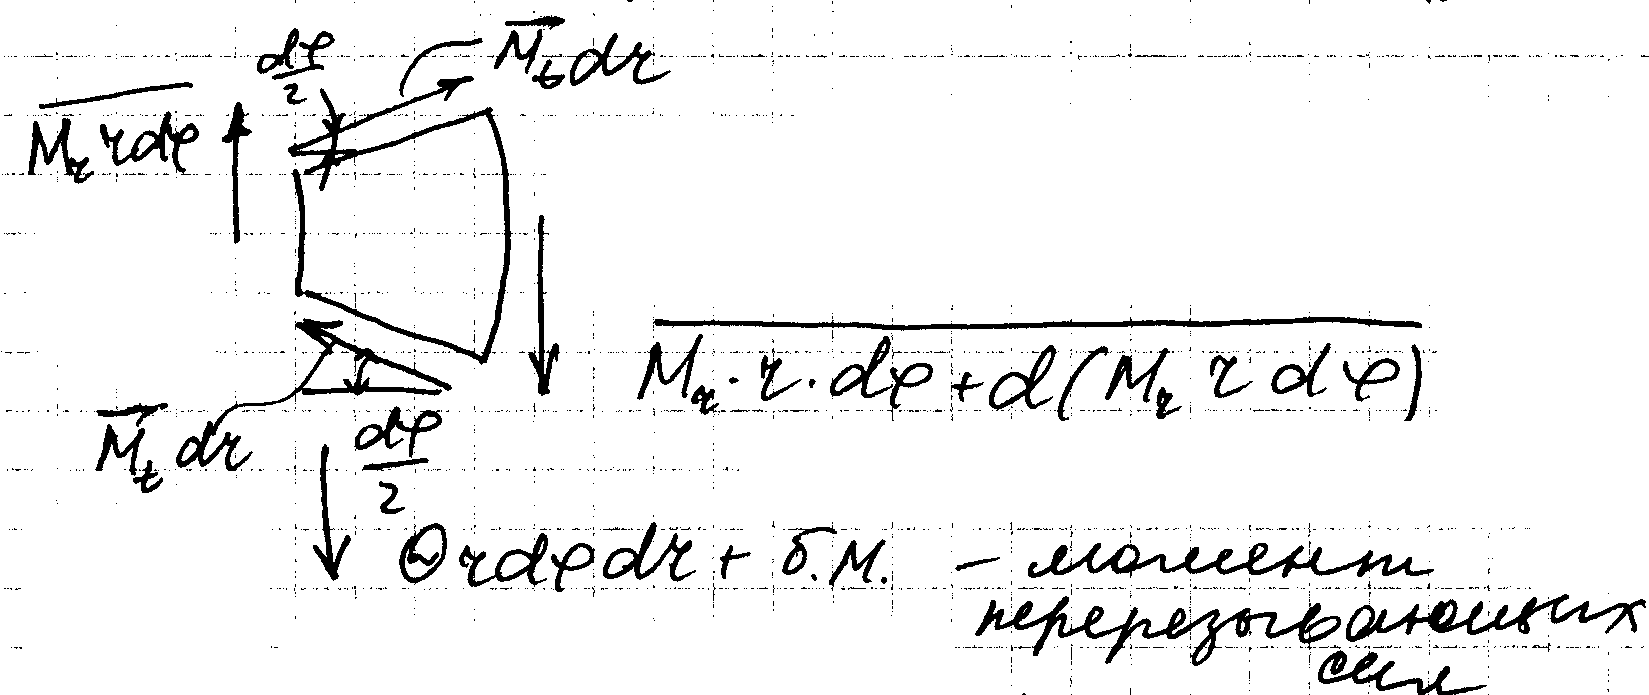 dφ/2
M_t dr
M_r r dφ
M_r · r · dφ + d(M_r r dφ)
M_t dr
dφ/2
Θ r dφ dr + б.м. – момент
перерезывающих
сил